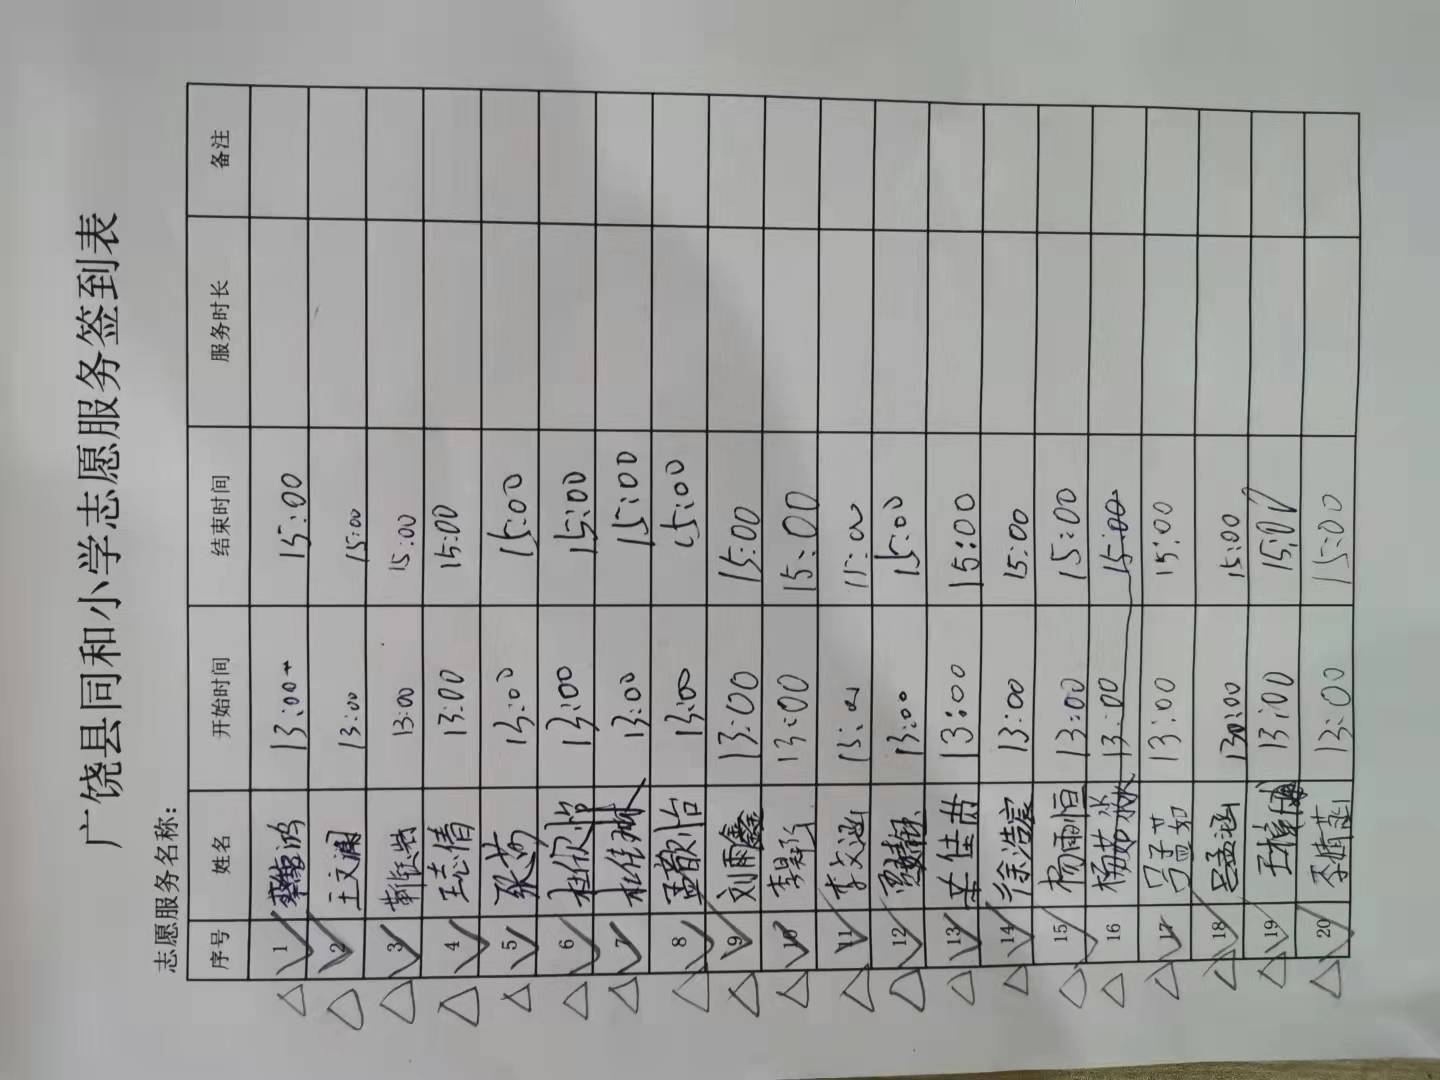 广饶县同和小学志愿服务签到表
志愿服务名称：
序号 姓名 开始时间 结束时间 服务时长 备注
1 13:00 15:00
2 王文澜 13:00 15:00
3 13:00 15:00
4 王志倩 13:00 15:00
5 张莎 13:00 15:00
6 杜欣怡 13:00 15:00
7 杜佳琳 13:00 15:00
8 孟歆怡 13:00 15:00
9 刘雨鑫 13:00 15:00
10 13:00 15:00
11 李文涵
12 13:00 15:00
13 佳茁 13:00 15:00
14 徐浩宸 13:00 15:00
15 杨雨恒 13:00 15:00
16 杨若 13:00 15:00
17 吕孟茹 13:00 15:00
18 吕孟涵 15:00
19 13:00 15:00
20 李婧菡 13:00 15:00